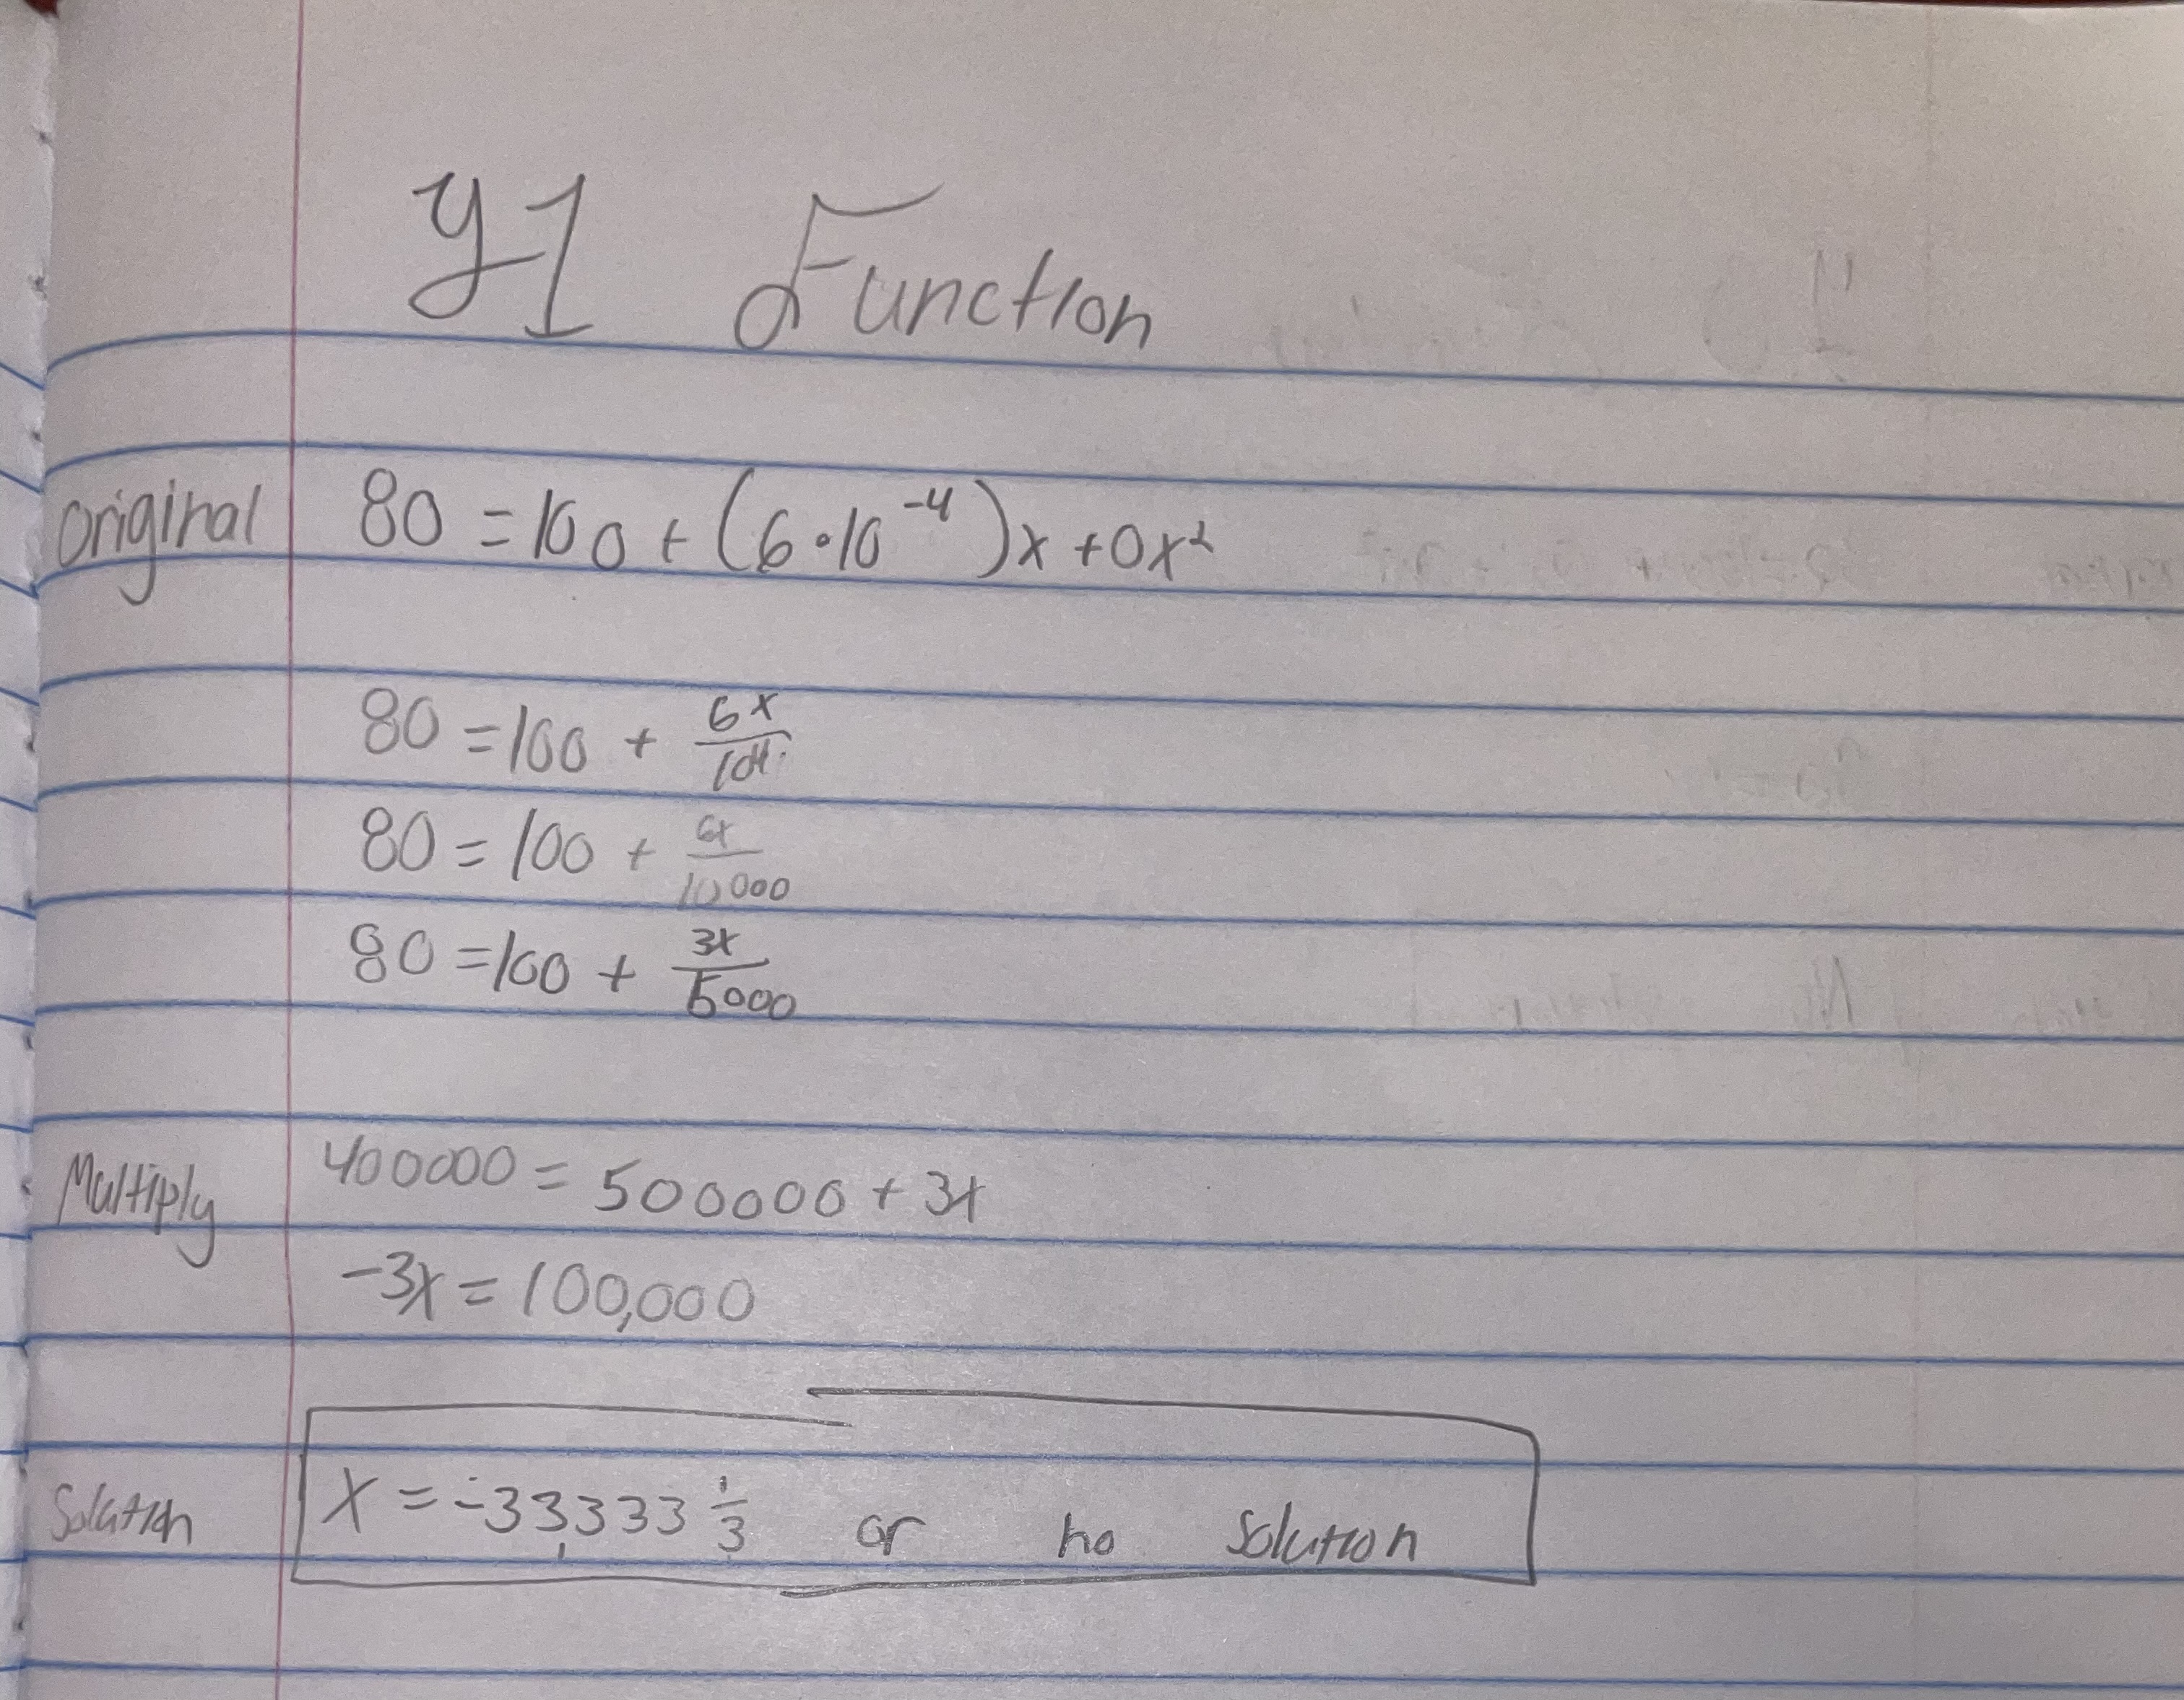 y1 Function
Original 80 = 100 + (6·10⁻⁴)x + 0x²
80 = 100 + 6x/10⁴
80 = 100 + 6x/10000
80 = 100 + 3x/5000
Multiply 400000 = 500000 + 3x
-3x = 100,000
Solution x = -33,333 1/3 or no solution